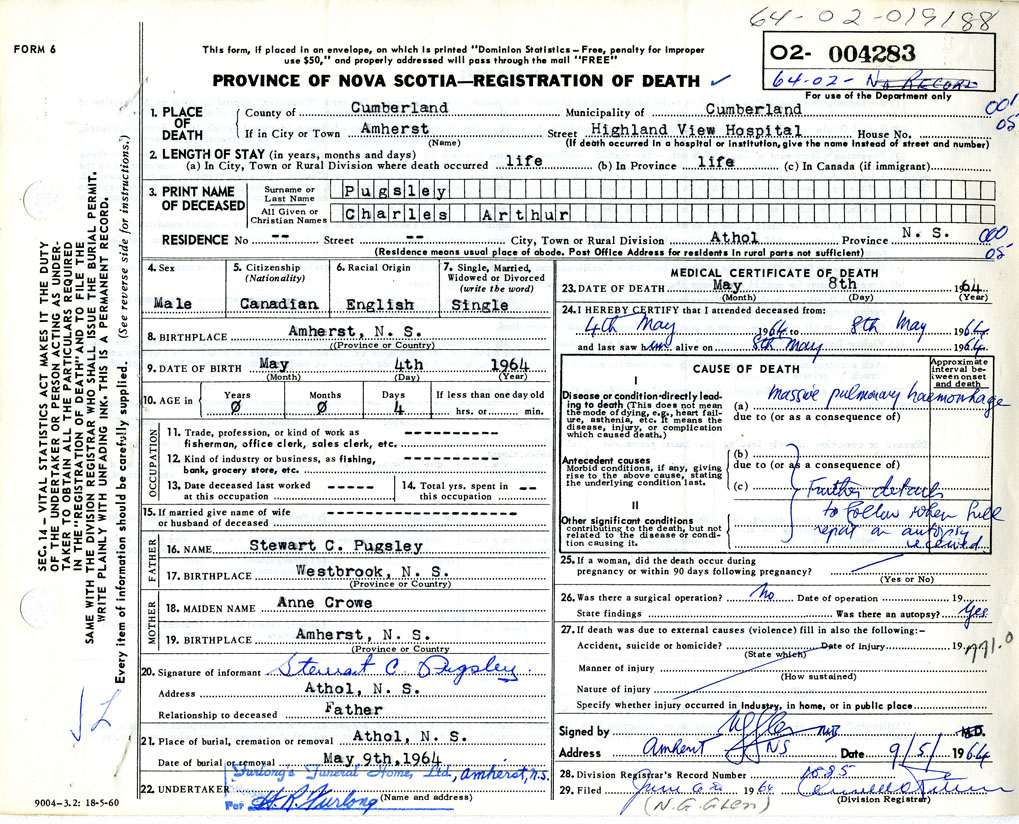 64-02-019188
FORM 6
This form, if placed in an envelope, on which is printed "Dominion Statistics – Free, penalty for improper
use $50," and properly addressed will pass through the mail "FREE"
02- 004283
64-02- No RECORD
For use of the Department only
PROVINCE OF NOVA SCOTIA—REGISTRATION OF DEATH ✓
1. PLACE OF DEATH
County of Cumberland Municipality of Cumberland
001
05
If in City or Town Amherst Street Highland View Hospital House No.
(Name) (If death occurred in a hospital or institution, give the name instead of street and number)
2. LENGTH OF STAY (in years, months and days)
(a) In City, Town or Rural Division where death occurred life (b) In Province life (c) In Canada (if immigrant)
3. PRINT NAME OF DECEASED
Surname or Last Name Pugsley
All Given or Christian Names Charles Arthur
RESIDENCE No -- Street -- City, Town or Rural Division Athol Province N. S.
000
05
(Residence means usual place of abode. Post Office Address for residents in rural parts not sufficient)
4. Sex
Male
5. Citizenship
(Nationality)
Canadian
6. Racial Origin
English
7. Single, Married,
Widowed or Divorced
(write the word)
Single
8. BIRTHPLACE Amherst, N. S.
((Province or Country)
9. DATE OF BIRTH May 4th 1964
(Month) (Day) (Year)
10. AGE in Years 0 Months 0 Days 4 If less than one day old
hrs. or min.
OCCUPATION
11. Trade, profession, or kind of work as
fisherman, office clerk, sales clerk, etc. ----------
12. Kind of industry or business, as fishing,
bank, grocery store, etc. ----------
13. Date deceased last worked
at this occupation -----
14. Total yrs. spent in
this occupation --
15. If married give name of wife
or husband of deceased --------------------
FATHER
16. NAME Stewart C. Pugsley
17. BIRTHPLACE Westbrook, N. S.
(Province or Country)
MOTHER
18. MAIDEN NAME Anne Crowe
19. BIRTHPLACE Amherst, N. S.
(Province or Country)
20. Signature of informant Stewart C Pugsley
Address Athol, N. S.
Relationship to deceased Father
21. Place of burial, cremation or removal Athol, N. S.
Date of burial or removal May 9th, 1964
22. UNDERTAKER Furlong's Funeral Home, Ltd., Amherst, N.S.
Per H. R. Furlong (Name and address)
9004-3.2: 18-5-60
MEDICAL CERTIFICATE OF DEATH
23. DATE OF DEATH May 8th 1964
(Month) (Day) (Year)
24. I HEREBY CERTIFY that I attended deceased from:
4th May 1964 to 8th May 1964
and last saw him alive on 8th May 1964
CAUSE OF DEATH
Approximate
interval be-
tween onset
and death
I
Disease or condition directly lead-
ing to death (This does not mean
the mode of dying, e.g., heart fail-
ure, asthenia, etc. It means the
disease, injury, or complication
which caused death.)
(a) massive pulmonary haemorrhage
due to (or as a consequence of)
Antecedent causes
Morbid conditions, if any, giving
rise to the above cause, stating
the underlying condition last.
(b)
due to (or as a consequence of)
(c)
Further details
to follow when full
report on autopsy
received.
II
Other significant conditions
contributing to the death, but not
related to the disease or condi-
tion causing it.
25. If a woman, did the death occur during
pregnancy or within 90 days following pregnancy?
(Yes or No)
26. Was there a surgical operation? No Date of operation 19
State findings Was there an autopsy? Yes
27. If death was due to external causes (violence) fill in also the following:–
Accident, suicide or homicide? Date of injury 19
(State which)
771.0
Manner of injury
(How sustained)
Nature of injury
Specify whether injury occurred in industry, in home, or in public place
Signed by M.D.
Address Amherst NS Date 9/5/ 1964
28. Division Registrar's Record Number 1885
29. Filed June 1964
(Division Registrar)
(N.G. GLEN)
SEC. 14 – VITAL STATISTICS ACT MAKES IT THE DUTY
OF THE UNDERTAKER OR PERSON ACTING AS UNDER-
TAKER TO OBTAIN ALL THE PARTICULARS REQUIRED
IN THE "REGISTRATION OF DEATH" AND TO FILE THE
SAME WITH THE DIVISION REGISTRAR WHO SHALL ISSUE THE BURIAL PERMIT.
WRITE PLAINLY WITH UNFADING INK. THIS IS A PERMANENT RECORD.
Every item of information should be carefully supplied. (See reverse side for instructions.)